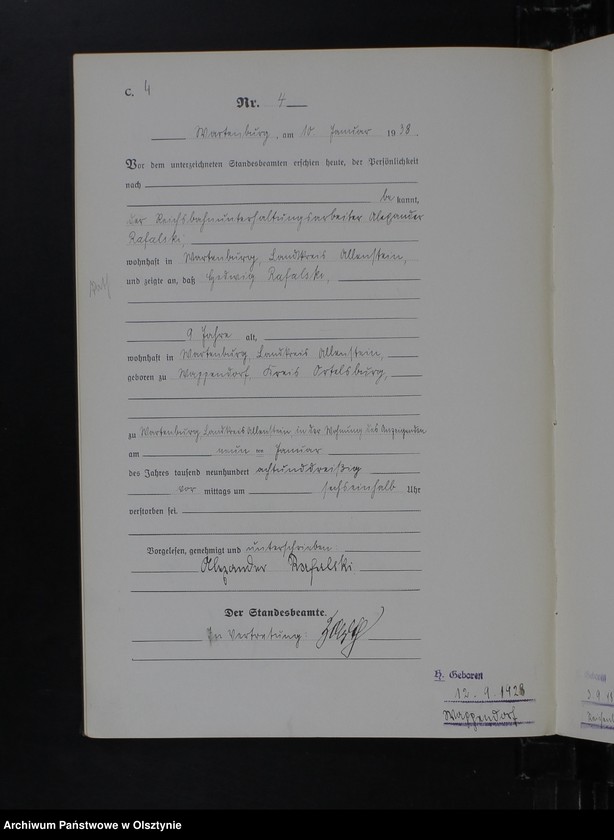 C. 4
Nr. 4
Wartenburg, am 10 Januar 1938.
Vor dem unterzeichneten Standesbeamten erschien heute, der Persönlichkeit
nach
bekannt,
der Reichsbahnunterhaltungsarbeiter Alexander
Rafalski,
wohnhaft in Wartenburg, Landkreis Allenstein,
und zeigte an, daß Hedwig Rafalski,
9 Jahre alt,
wohnhaft in Wartenburg Landkreis Allenstein,
geboren zu Wappendorf Kreis Ortelsburg,
zu Wartenburg Landkreis Allenstein, in der Wohnung des Anzeigenden
am neun ten Januar
des Jahres tausend neunhundert achtunddreißig
vor mittags um sechseinhalb Uhr
verstorben sei.
Vorgelesen, genehmigt und unterschrieben
Alexander Rafalski
Der Standesbeamte.
In Vertretung:
H. Geboren
12.9.1928
Wappendorf
Archiwum Państwowe w Olsztynie